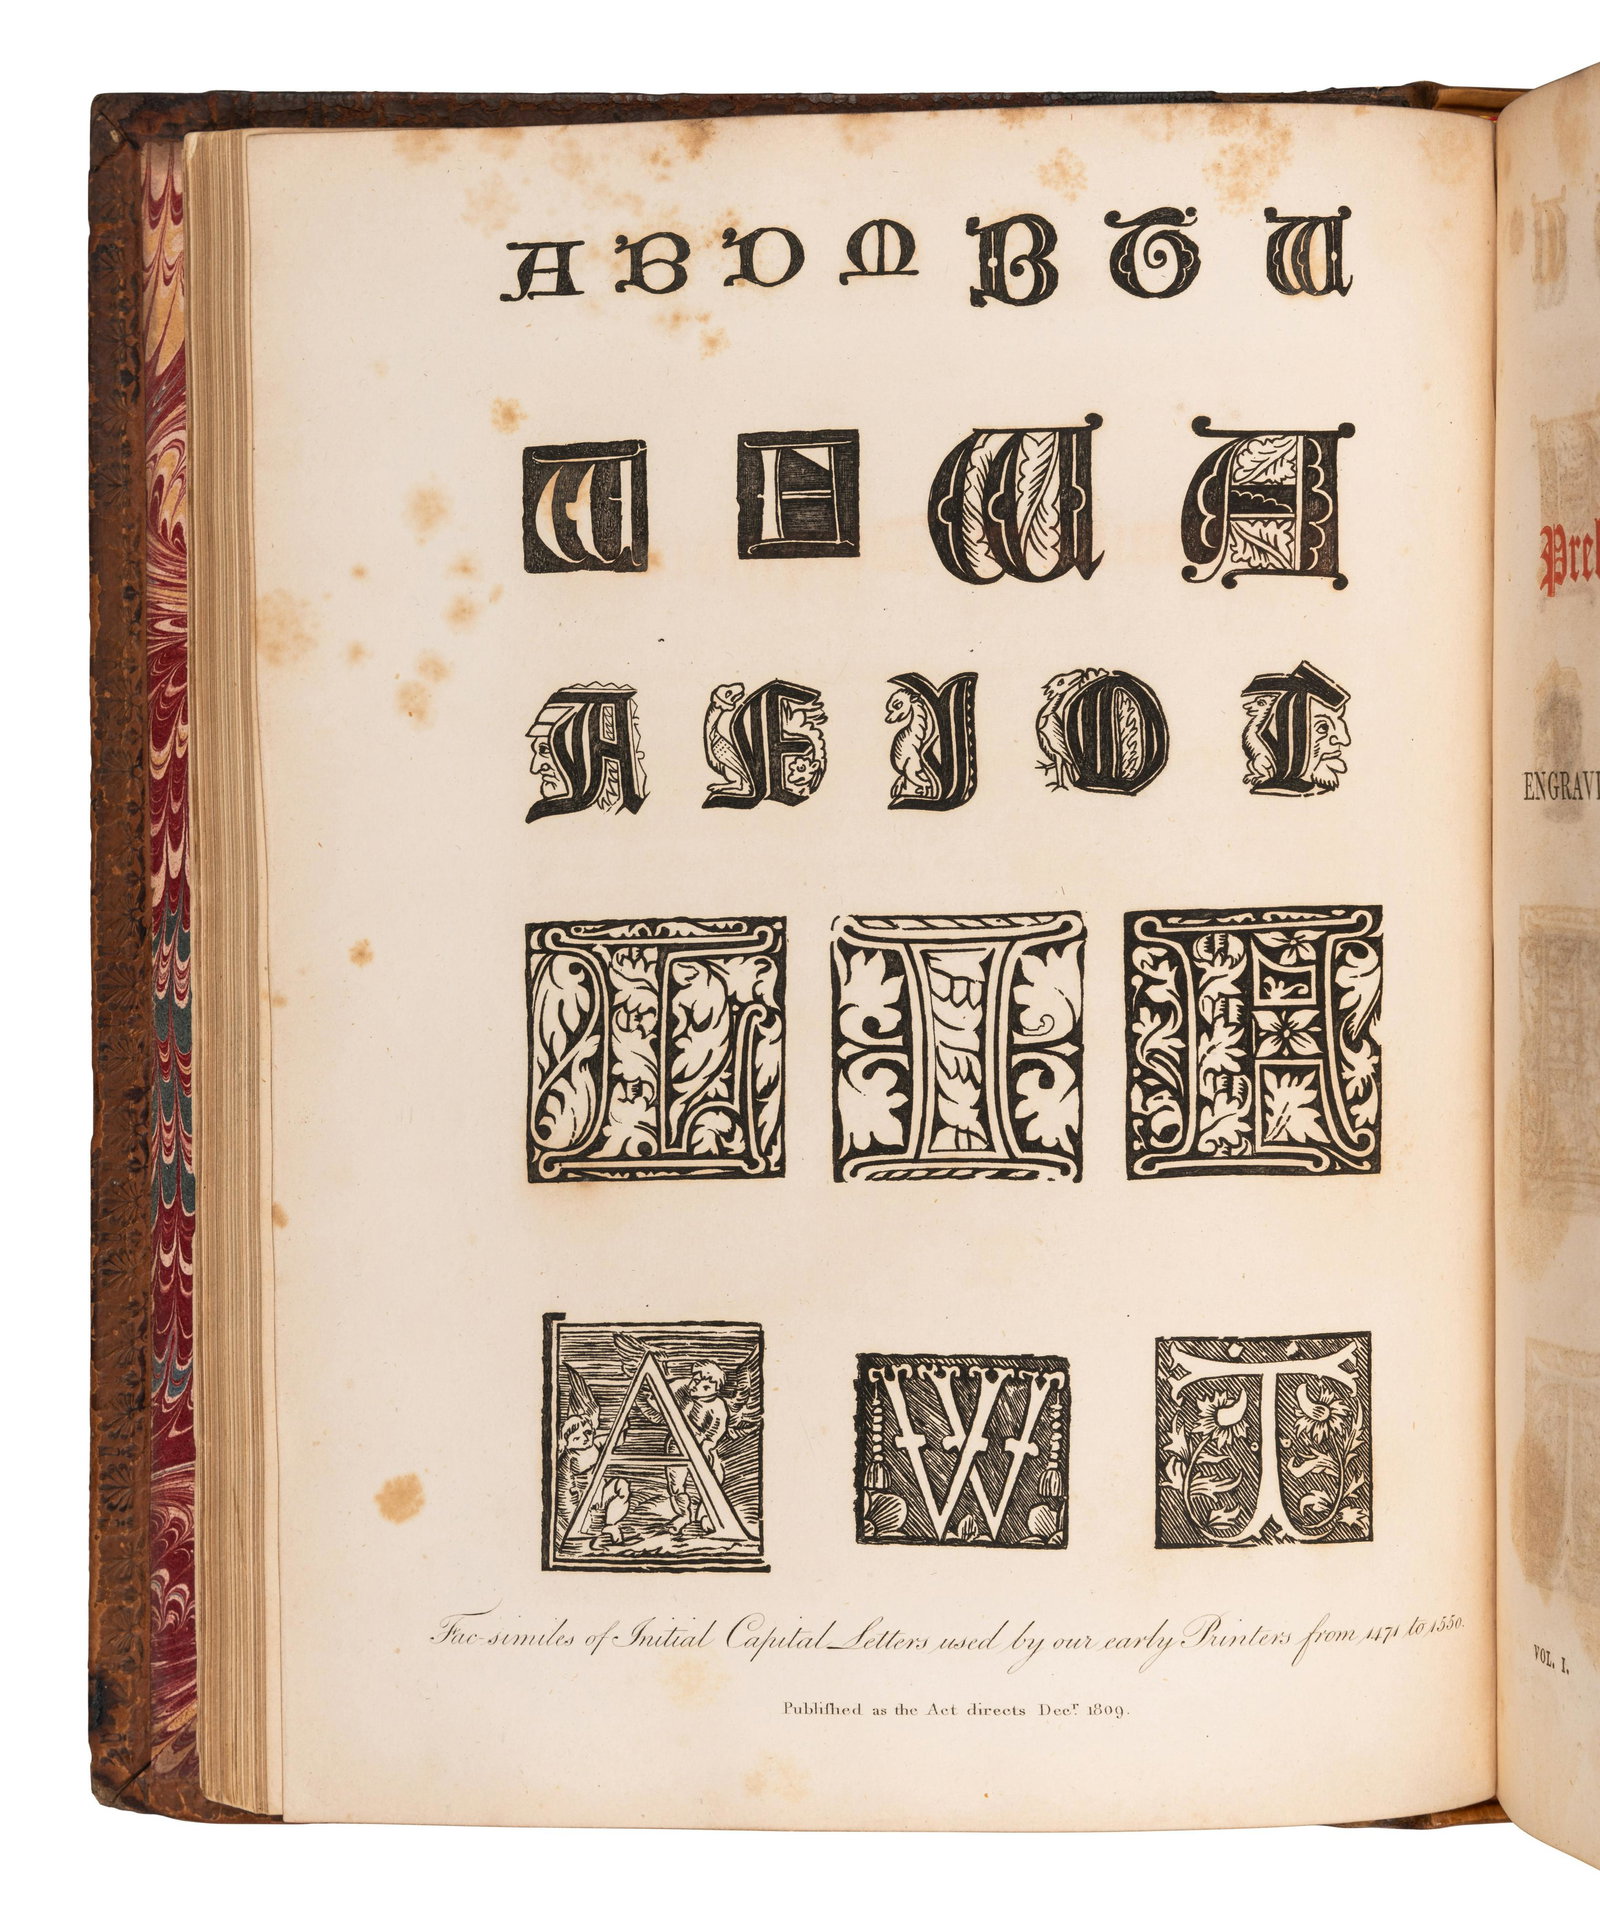 A B D M B T
W A W A
A E Y O T
L I
A W T
Fac-similes of Initial Capital Letters used by our early Printers from 1471 to 1550.
Publiſhed as the Act directs Decr. 1809.
Prel
ENGRAVI
VOL. I.